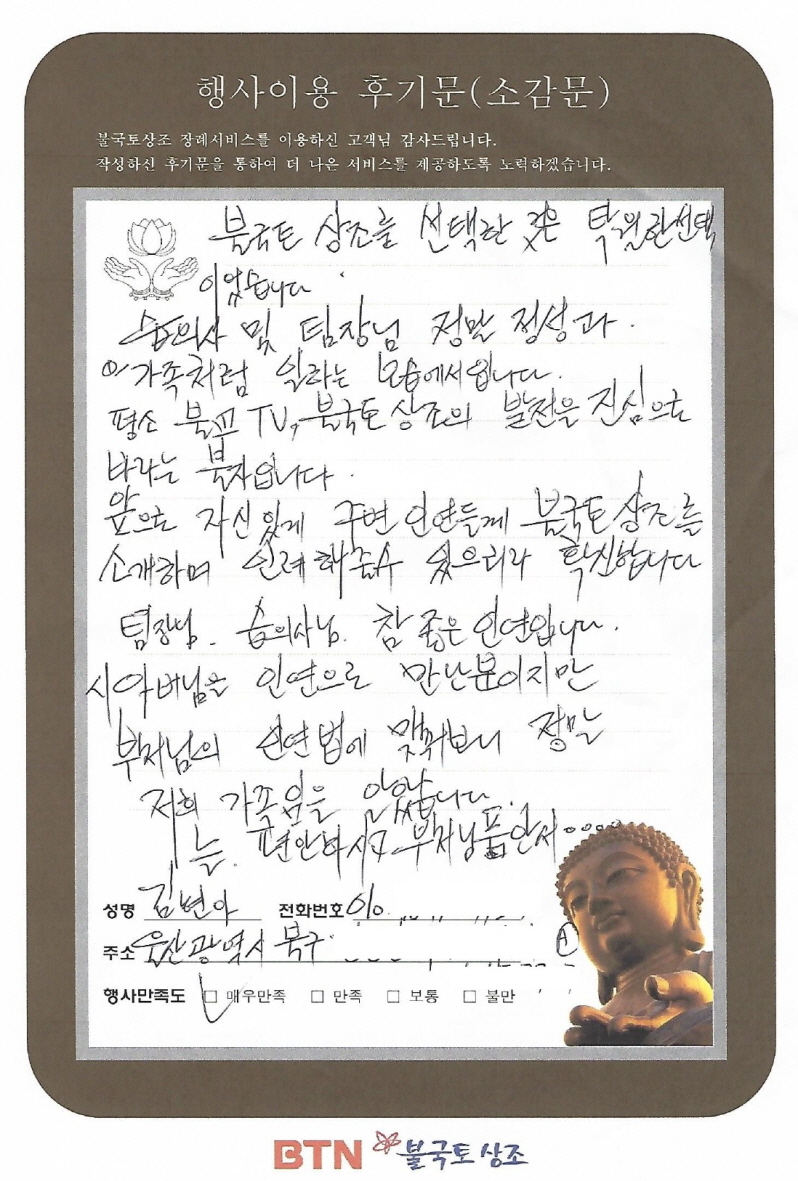 행사이용 후기문(소감문)
불국토상조 장례서비스를 이용하신 고객님 감사드립니다.
작성하신 후기문을 통하여 더 나은 서비스를 제공하도록 노력하겠습니다.
불국토 상조를 선택한 것은 탁월한선택
이었습니다
습의사 및 팀장님 정말 정성과
가족처럼 일하는 모습에서입니다.
평소 불교 TV, 불국토상조의 발전을 진심으로
바라는 불자입니다.
앞으로 자신있게 주변 인연들게 불국토상조를
소개하며 인례해줄수 있으리라 확신합니다
팀장님. 습의사님. 참 좋은 인연입니다.
시아버님을 인연으로 만난분이지만
부처님의 인연법에 맞춰보니 정말
저희 가족임을 알았습니다.
늘. 편안하시구 부처님품안서....
성명 김변아 전화번호 010
주소 울산광역시 북구
행사만족도 □ 매우만족 □ 만족 □ 보통 □ 불만
BTN 불국토상조